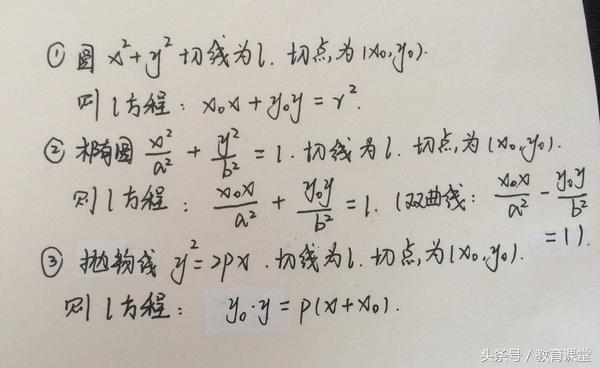 ① 圆 x²+y² 切线为l. 切点,为(x₀,y₀).
则 l方程: x₀x+y₀y=r².
② 椭圆 x²/a² + y²/b² =1. 切线为l. 切点,为(x₀,y₀).
则 l方程: x₀x/a² + y₀y/b² =1. (双曲线: x₀x/a² - y₀y/b²
=1).
③ 抛物线 y²=2px. 切线为l. 切点,为(x₀,y₀).
则 l方程: y₀·y=p(x+x₀).
头条号 / 教育课堂